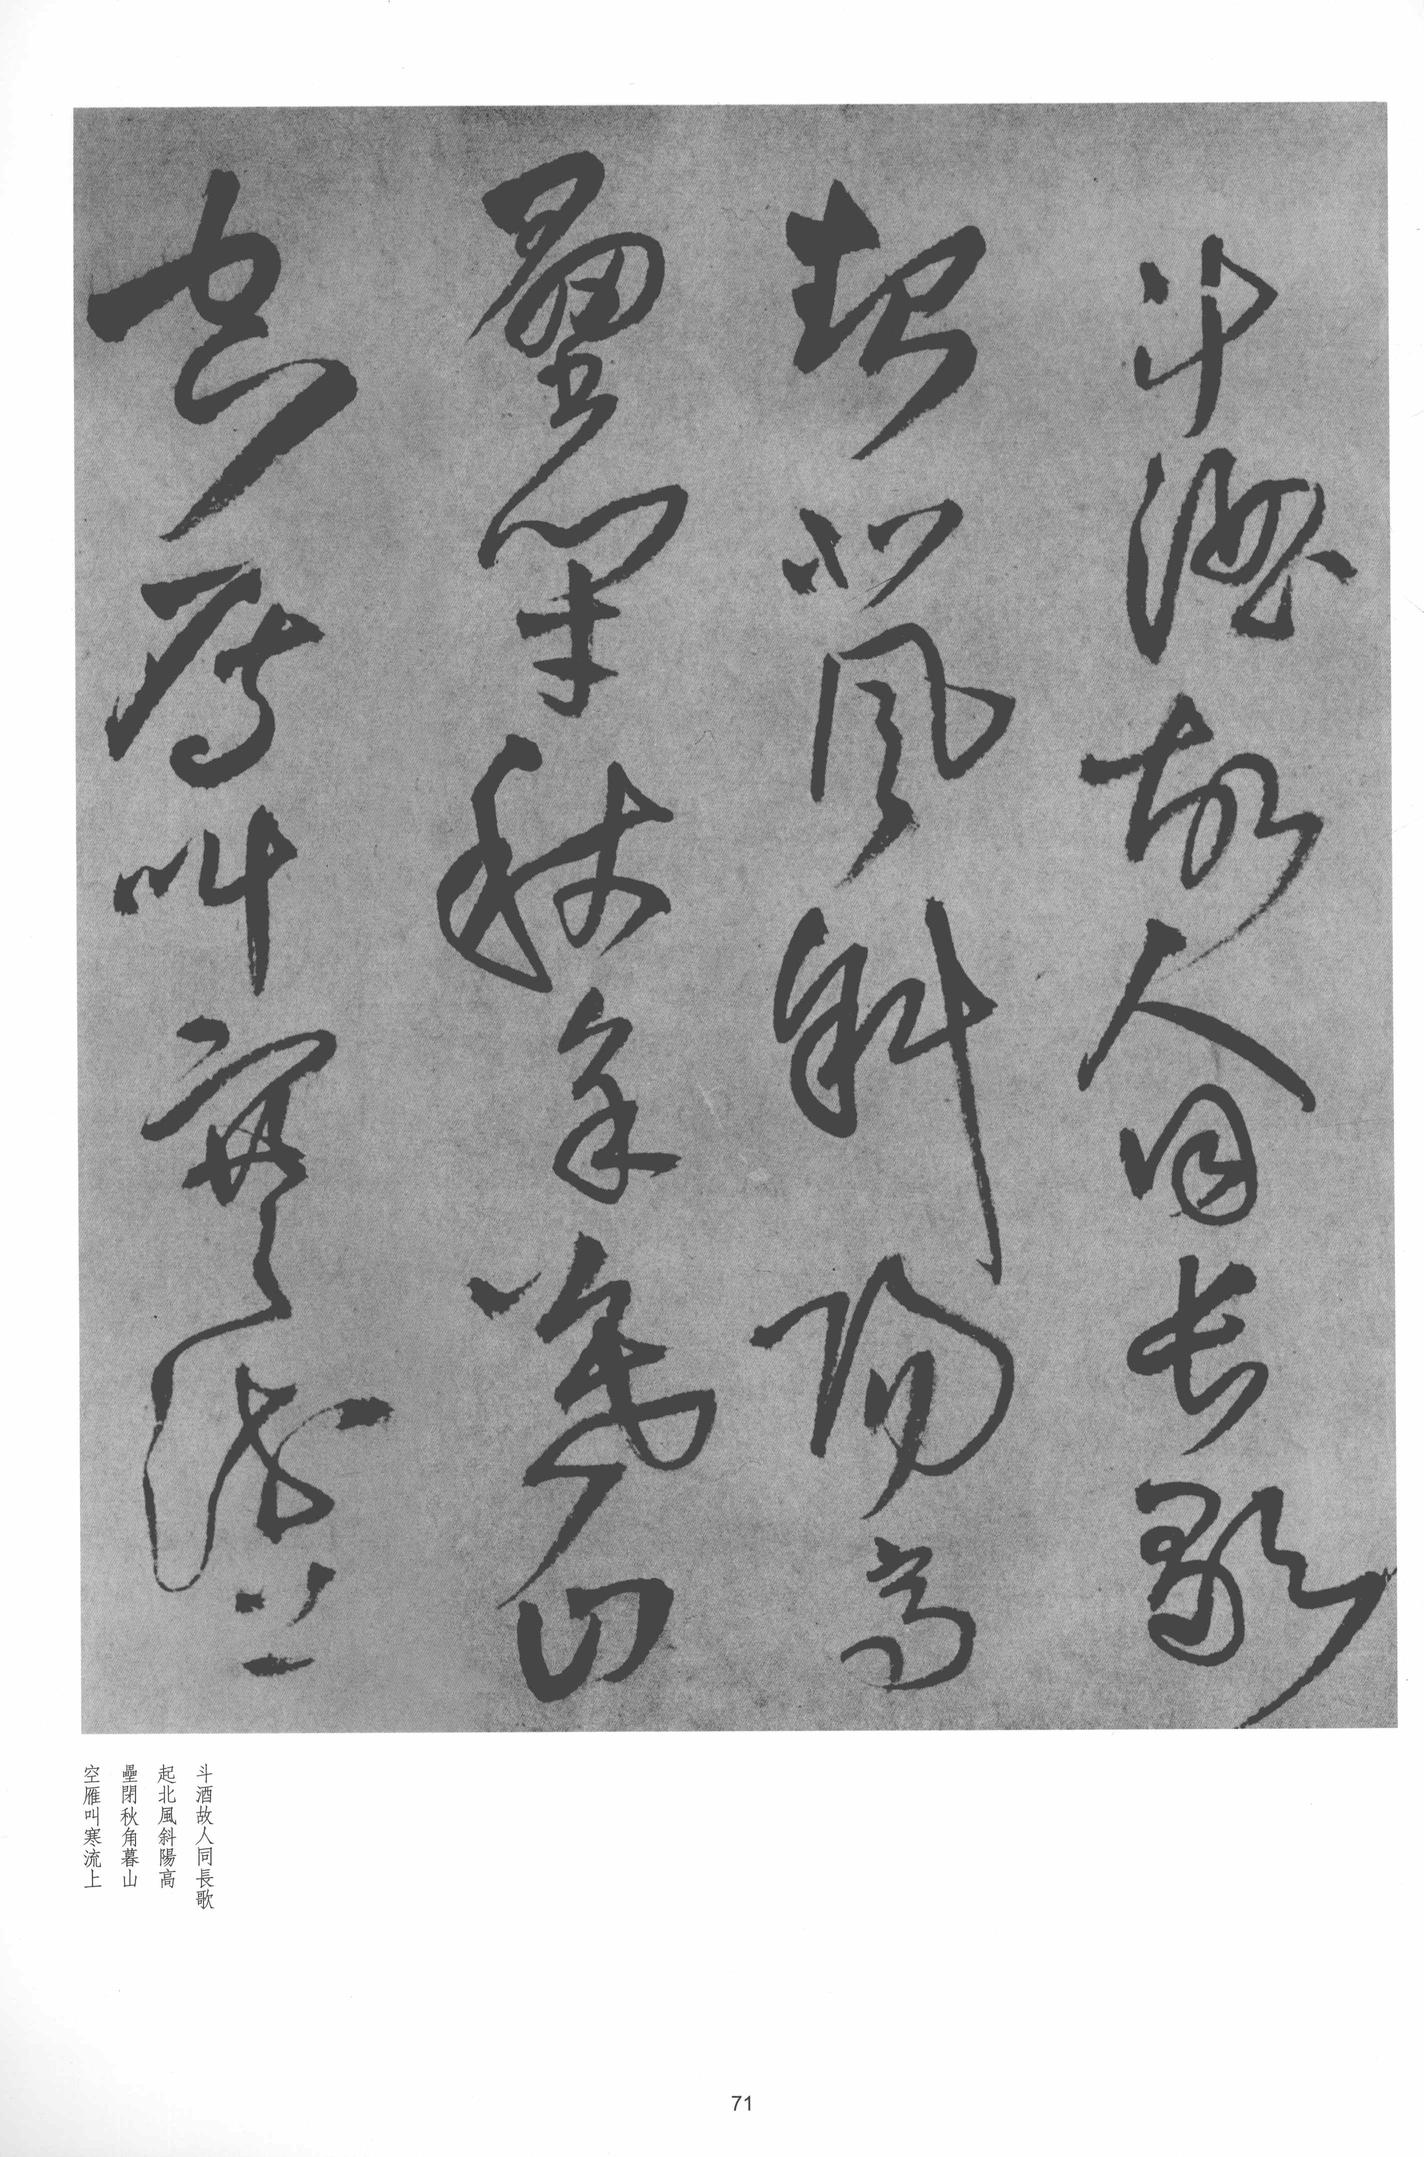 斗酒故人同長歌
起北風斜陽高
壘閉秋角暮山
空雁叫寒流上
斗酒故人同長歌
起北風斜陽高
壘閉秋角暮山
空雁叫寒流上
71